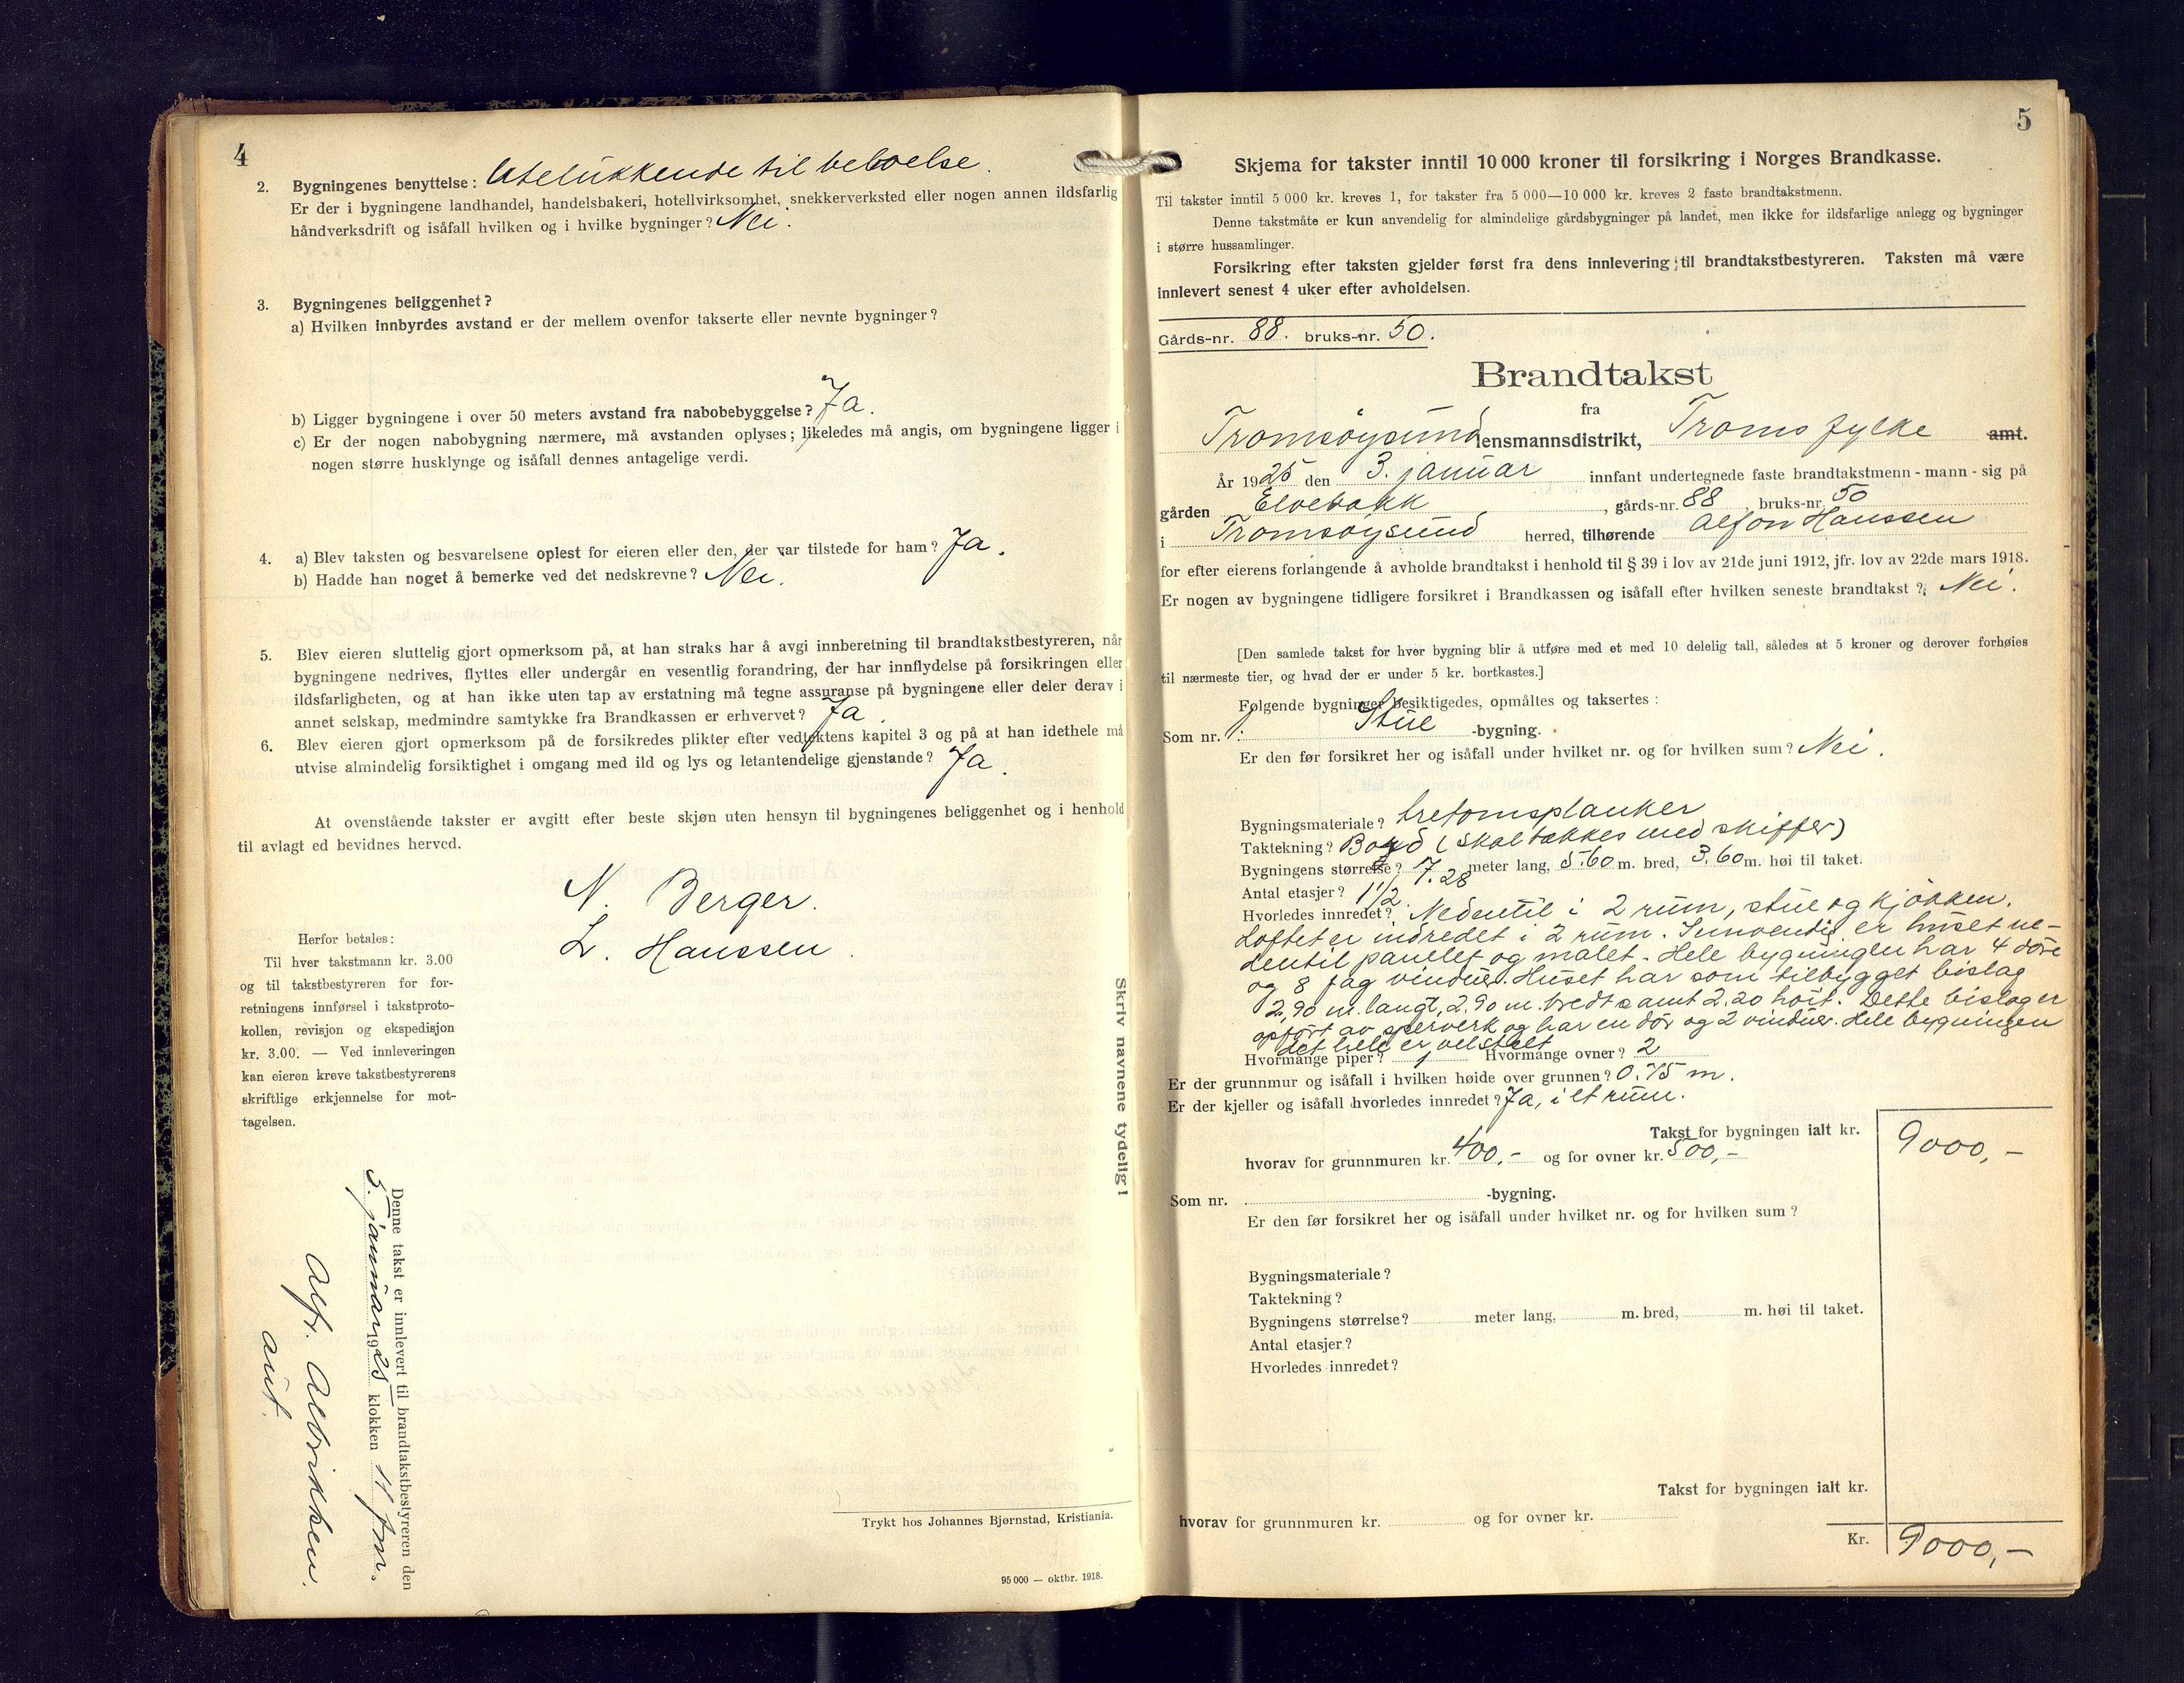 4
2. Bygningenes benyttelse: Utelukkende til beboelse.
Er der i bygningene landhandel, handelsbakeri, hotellvirksomhet, snekkerverksted eller nogen annen ildsfarlig
håndverksdrift og isåfall hvilken og i hvilke bygninger? Nei.
3. Bygningenes beliggenhet?
a) Hvilken innbyrdes avstand er der mellem ovenfor takserte eller nevnte bygninger?
b) Ligger bygningene i over 50 meters avstand fra nabobebyggelse? Ja.
c) Er der nogen nabobygning nærmere, må avstanden oplyses; likeledes må angis, om bygningene ligger i
nogen større husklynge og isåfall dennes antagelige verdi.
4. a) Blev taksten og besvarelsene oplest for eieren eller den, der var tilstede for ham? Ja.
b) Hadde han noget å bemerke ved det nedskrevne? Nei.
5. Blev eieren sluttelig gjort opmerksom på, at han straks har å avgi innberetning til brandtakstbestyreren, når
bygningene nedrives, flyttes eller undergår en vesentlig forandring, der har innflydelse på forsikringen eller
ildsfarligheten, og at han ikke uten tap av erstatning må tegne assuranse på bygningene eller deler derav i
annet selskap, medmindre samtykke fra Brandkassen er erhvervet? Ja.
6. Blev eieren gjort opmerksom på de forsikredes plikter efter vedtektens kapitel 3 og på at han idethele må
utvise almindelig forsiktighet i omgang med ild og lys og letantendelige gjenstande? Ja.
At ovenstående takster er avgitt efter beste skjøn uten hensyn til bygningenes beliggenhet og i henhold
til avlagt ed bevidnes herved.
N. Berger.
L. Hanssen.
Herfor betales:
Til hver takstmann kr. 3.00
og til takstbestyreren for for-
retningens innførsel i takstproto-
kollen, revisjon og ekspedisjon
kr. 3.00. — Ved innleveringen
kan eieren kreve takstbestyrerens
skriftlige erkjennelse for mot-
tagelsen.
Denne takst er innlevert til brandtakstbestyreren den
5. januar 1925 klokken 11 fm.
Alfr. Albrikksen.
aut.
Skriv navnene tydelig!
Trykt hos Johannes Bjørnstad, Kristiania.
95 000 — oktbr. 1918.
5
Skjema for takster inntil 10 000 kroner til forsikring i Norges Brandkasse.
Til takster inntil 5 000 kr. kreves 1, for takster fra 5 000—10 000 kr. kreves 2 faste brandtakstmenn.
Denne takstmåte er kun anvendelig for almindelige gårdsbygninger på landet, men ikke for ildsfarlige anlegg og bygninger
i større hussamlinger.
Forsikring efter taksten gjelder først fra dens innlevering til brandtakstbestyreren. Taksten må være
innlevert senest 4 uker efter avholdelsen.
Gårds-nr. 88. bruks-nr. 50.
Brandtakst
fra
Tromsøysund lensmannsdistrikt, Troms fylke amt.
År 1925 den 3. januar innfant undertegnede faste brandtakstmenn - mann - sig på
gården Elvebakk, gårds-nr. 88, bruks-nr. 50
i Tromsøysund herred, tilhørende Alfon Hanssen
for efter eierens forlangende å avholde brandtakst i henhold til § 39 i lov av 21de juni 1912, jfr. lov av 22de mars 1918.
Er nogen av bygningene tidligere forsikret i Brandkassen og isåfall efter hvilken seneste brandtakst? Nei.
[Den samlede takst for hver bygning blir å utføre med et med 10 delelig tall, således at 5 kroner og derover forhøies
til nærmeste tier, og hvad der er under 5 kr. bortkastes.]
Følgende bygninger besiktigedes, opmåltes og taksertes:
Som nr. 1. Stue -bygning.
Er den før forsikret her og isåfall under hvilket nr. og for hvilken sum? Nei.
Bygningsmateriale? tretomsplanker
Taktekning? Bord (skal tækkes med skiffer)
Bygningens størrelse? 7.28 meter lang, 5.60 m. bred, 3.60 m. høi til taket.
Antal etasjer? 1 1/2.
Hvorledes innredet? Nedentil i 2 rum, stue og kjøkken.
Loftet er indredet i 2 rum. Innvendig er huset ne-
dentil panelet og malet. Hele bygningen har 4 døre
og 8 fag vinduer. Huset har som tilbygget bislag
2,90 m. langt, 2.90 m. bredt samt 2.20 høit. Dette bislag er
opført av sperverk og har en dør og 2 vinduer. Hele bygningen
det hele er velstelt
Hvormange piper? 1 Hvormange ovner? 2
Er der grunnmur og isåfall i hvilken høide over grunnen? 0.75 m.
Er der kjeller og isåfall hvorledes innredet? Ja, i et rum.
Takst for bygningen ialt kr. 9000,-
hvorav for grunnmuren kr. 400,- og for ovner kr. 500,-
Som nr. -bygning.
Er den før forsikret her og isåfall under hvilket nr. og for hvilken sum?
Bygningsmateriale?
Taktekning?
Bygningens størrelse? meter lang, m. bred, m. høi til taket.
Antal etasjer?
Hvorledes innredet?
Takst for bygningen ialt kr.
hvorav for grunnmuren kr. og for ovner kr.
Kr. 9000,-